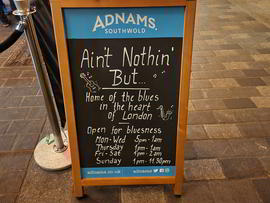 ADNAMS.
SOUTHWOLD
Ain't Nothin'
But...
Home of the blues
in the heart
of London
Open for bluesness
Mon-Wed 5pm-1am
Thursday 1pm-1am
Fri-Sat 1pm-2am
Sunday 1pm-11:30pm
adnams.co.uk
adnams